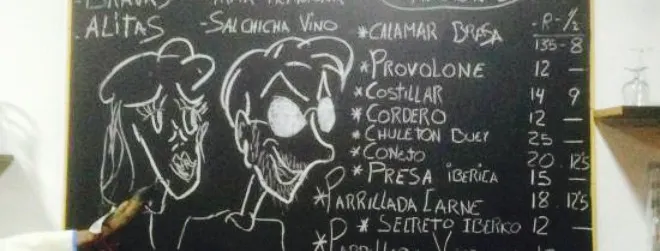 BRAVAS
ALITAS
-SALCHICHA VINO
-R-½
*CALAMAR BRASA 13'5-8
*PROVOLONE 12 —
*COSTILLAR 14 9
*CORDERO 12 —
*CHULETON BUEY 25 —
*CONEJO 20 12'5
*PRESA IBERICA 15 —
*PARRILLADA CARNE 18 12'5
*SECRETO IBERICO 12 —